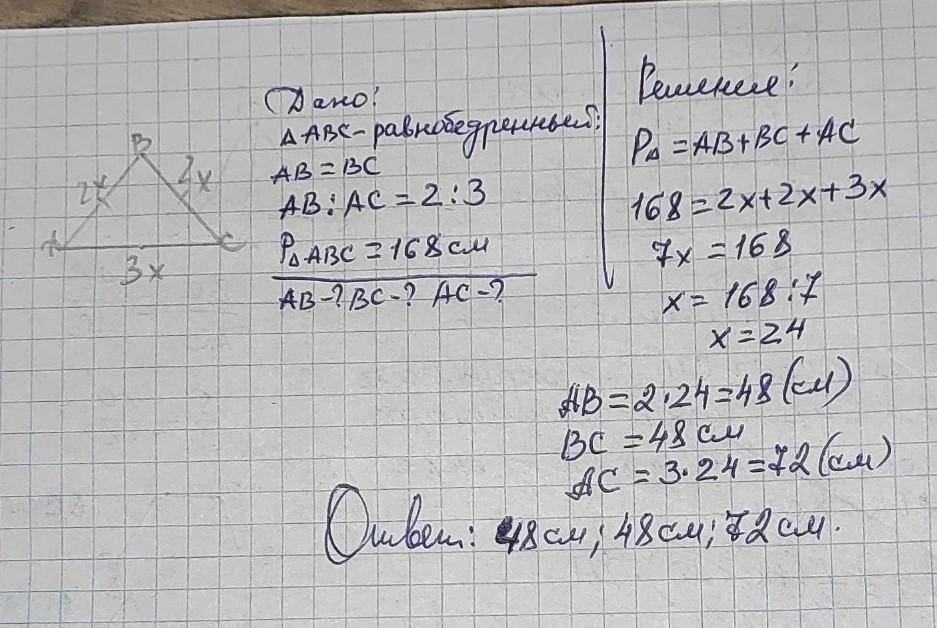 B
2x
2x
A
C
3x
Дано:
∆ABC-равнобедренный:
AB=BC
AB:AC=2:3
P∆ABC=168см
AB-? BC-? AC-?
Решение:
P∆=AB+BC+AC
168=2x+2x+3x
7x=168
x=168:7
x=24
AB=2·24=48(см)
BC=48см
AC=3·24=72(см)
Ответ: 48см; 48см; 72см.